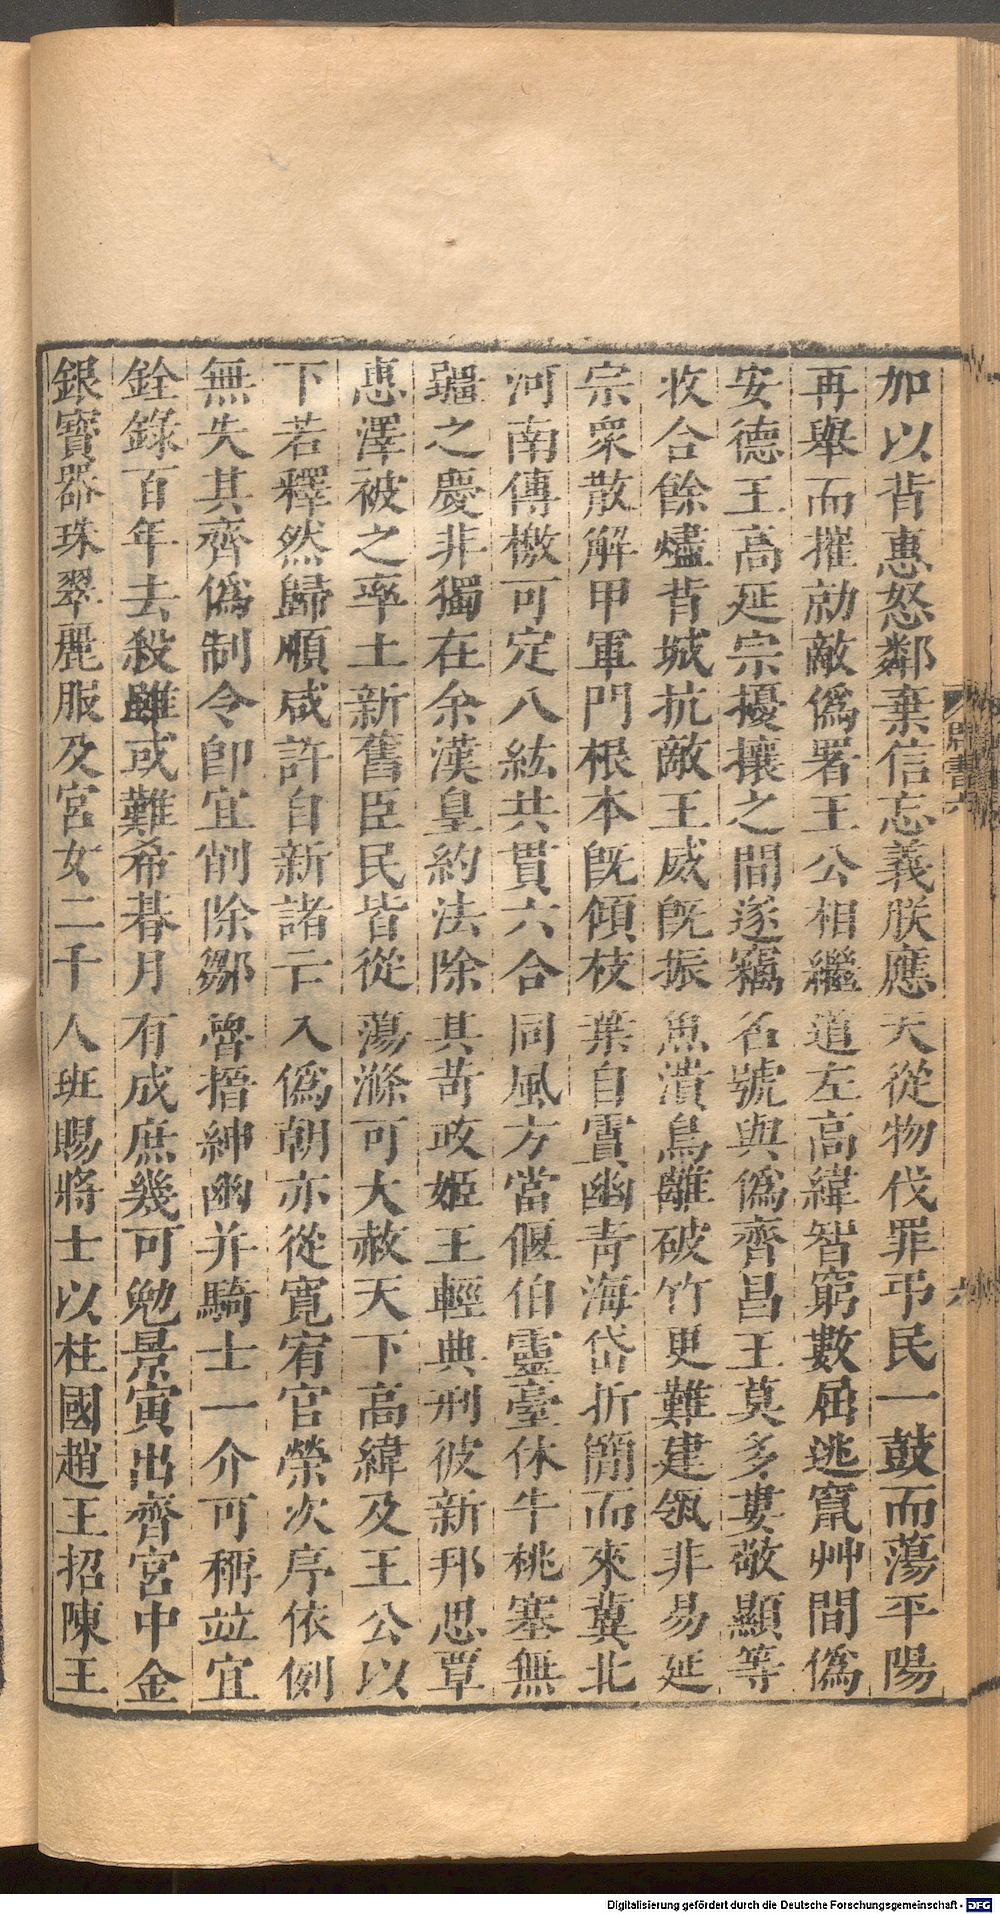 加以背惠怒鄰棄信忘義朕應天從物伐罪弔民一鼓而蕩平陽
再舉而摧勍敵偽署王公相繼道左高緯智窮數屈逃竄艸間偽
安德王高延宗擾攘之間遂竊名號與偽齊昌王莫多婁敬顯等
收合餘燼背城抗敵王威旣振魚潰鳥離破竹更難建瓴非易延
宗眾散解甲軍門根本旣傾枝葉自霣幽青海岱折簡而來冀北
河南傳檄可定八紘共貫六合同風方當偃伯靈臺休牛桃塞無
疆之慶非獨在余漢皇約法除其苛政姬王輕典刑彼新邦思覃
惠澤被之率土新舊臣民皆從蕩滌可大赦天下高緯及王公以
下若釋然歸順咸許自新諸亡入偽朝亦從寬宥官榮次序依例
無失其齊偽制令卽宜削除鄒魯搢紳幽并騎士一介可稱竝宜
銓錄百年去殺雖或難希朞月有成庶幾可勉景寅出齊宮中金
銀寶器珠翠麗服及宮女二千人班賜將士以柱國趙王招陳王
書六
六
Digitalisierung gefördert durch die Deutsche Forschungsgemeinschaft - DFG